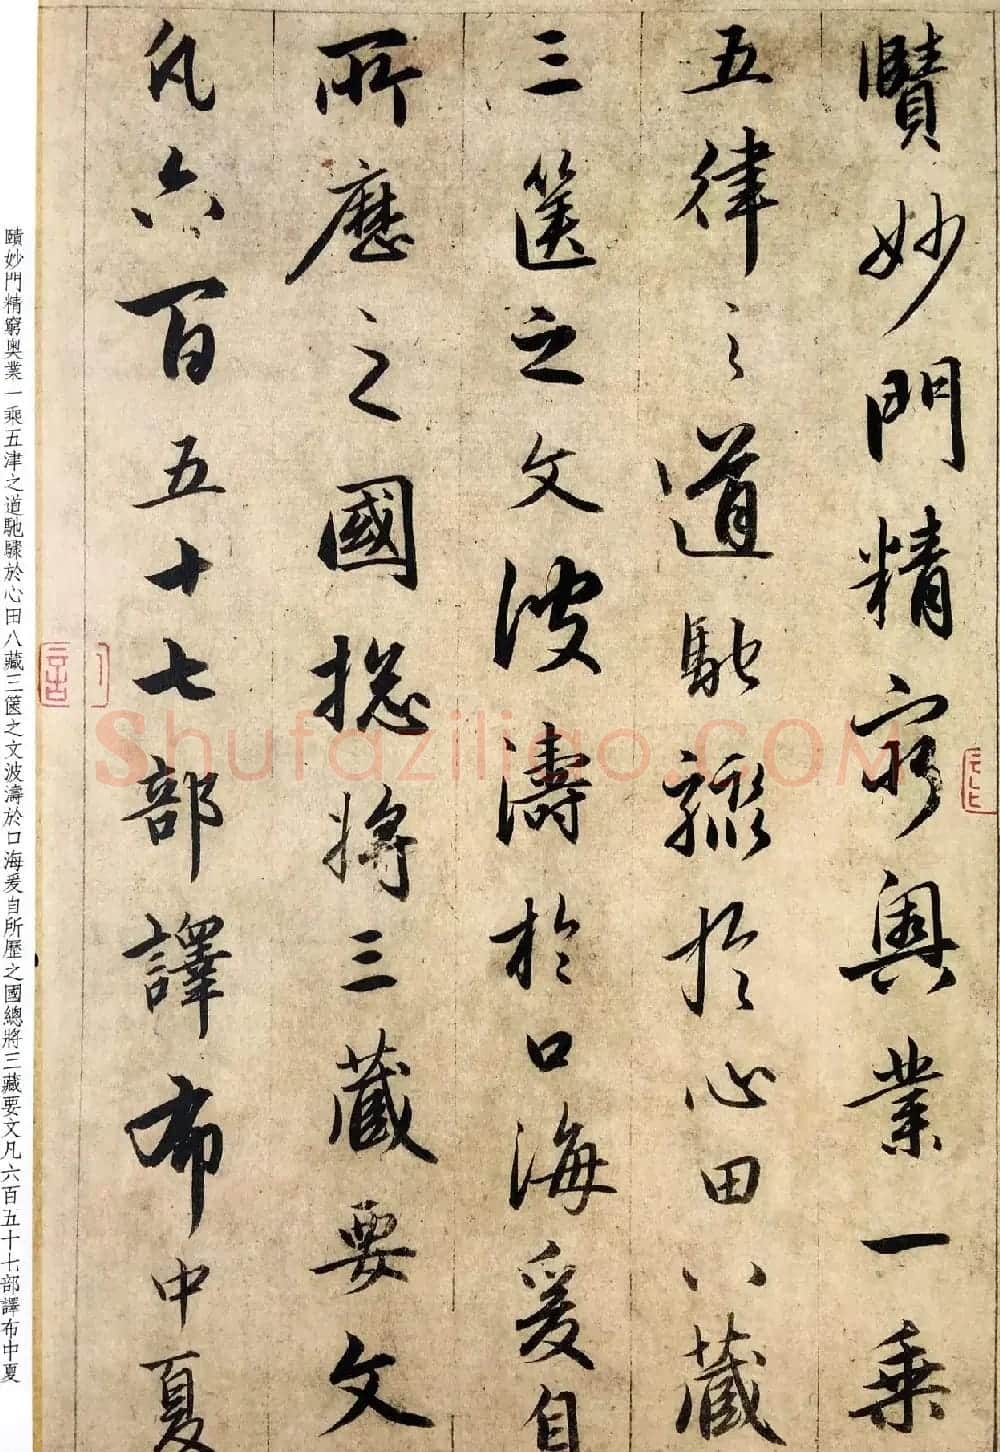 賾妙門精窮奧業一乗
五律之道馳驟於心田八藏
三篋之文波濤於口海爰自
所歷之國捴將三藏要文
凡六百五十七部譯布中夏
賾妙門精窮奥業一乘五津之道馳驟於心田八藏三篋之文波濤於口海爰自所歷之國總將三藏要文凡六百五十七部譯布中夏
Shufaziliao.COM